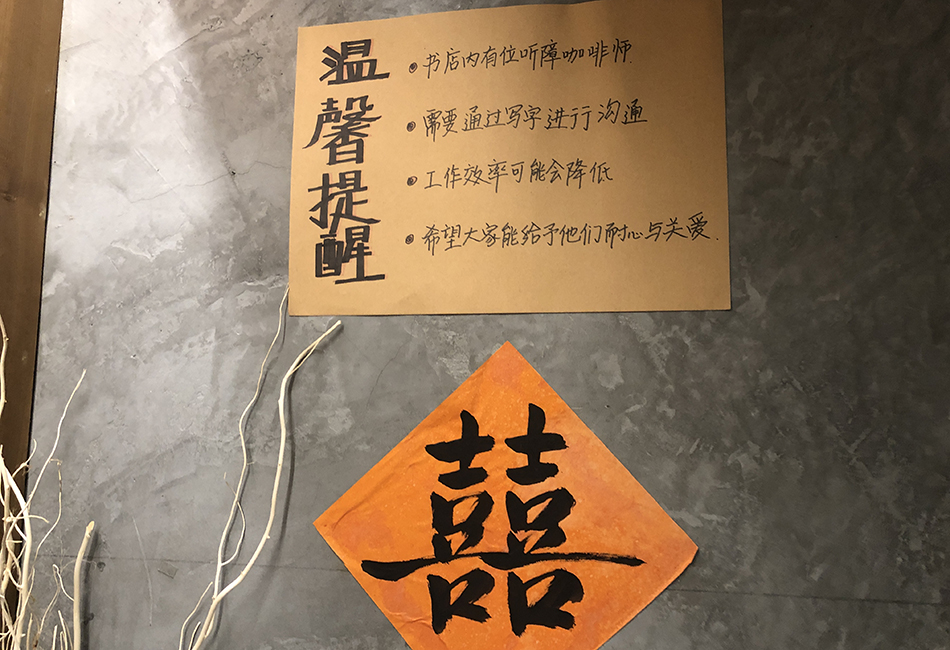 温馨提醒
书店内有位听障咖啡师
需要通过写字进行沟通
工作效率可能会降低
希望大家能给予他们耐心与关爱.
囍